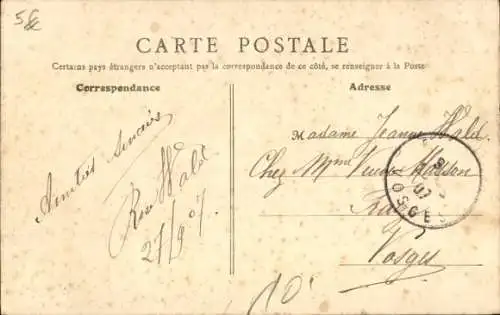 CARTE POSTALE
Certains pays étrangers n'acceptant pas la correspondance de ce côté, se renseigner à la Poste
Correspondance
Adresse
Amitiés
Wald
27/9 07.
Madame Jeanne Wald.
Chez Mme Veuve Masson
Vosges
10